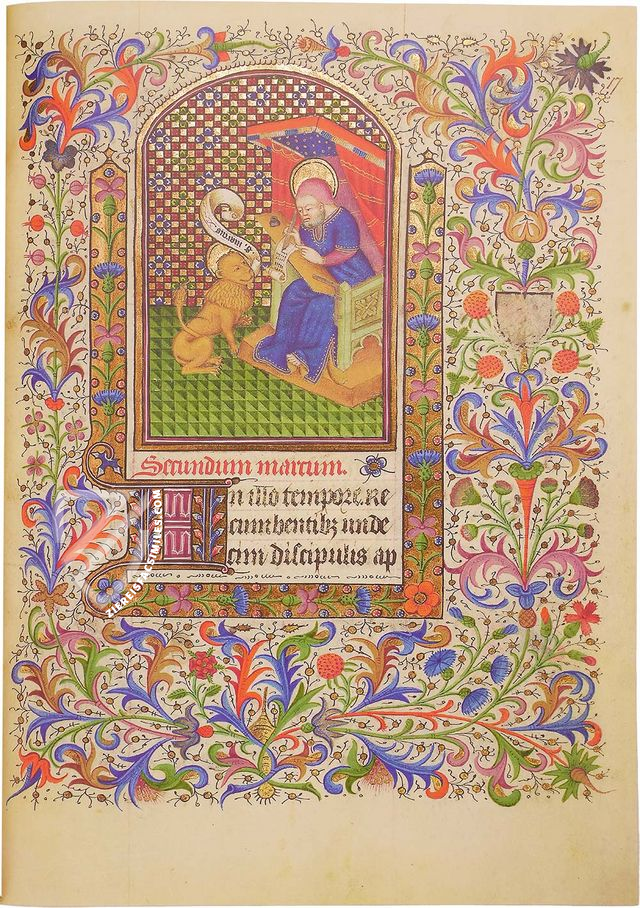 S. marcus
Secundum marcum.
In illo tempore. Re
cumbentibz unde
cim discipulis ap
ZIEREISFACSIMILES.COM